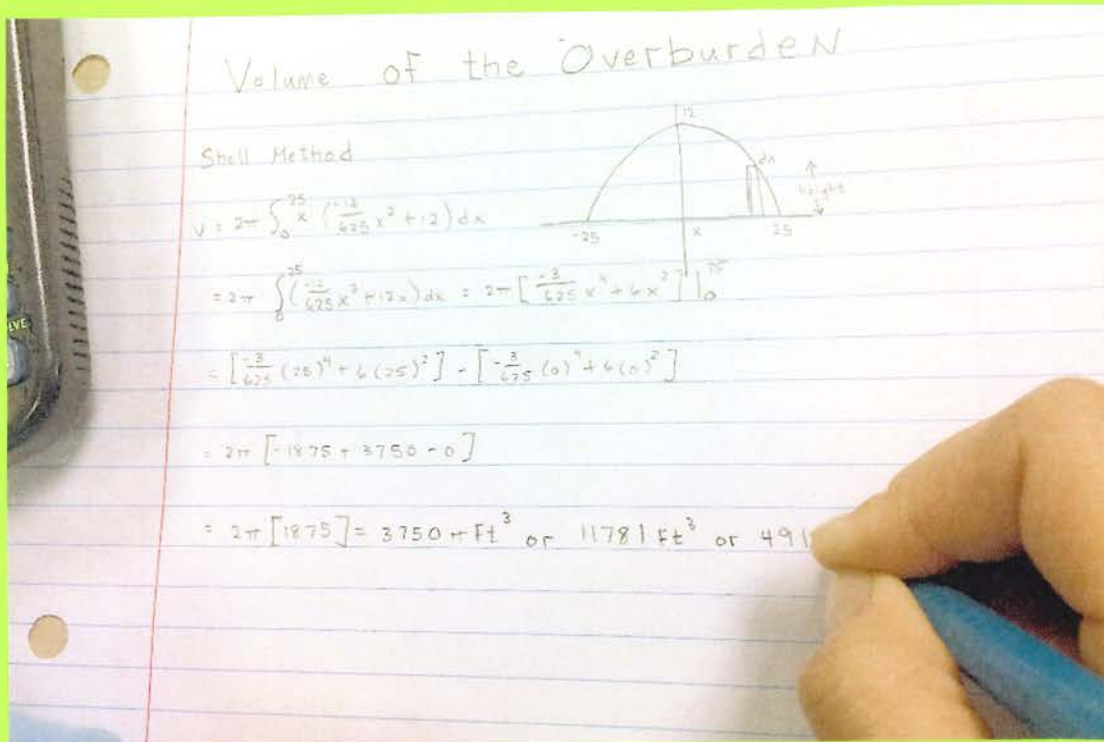 Volume of the OverburdeN
Shell Method
12
dx
height
-25 x 25
V = 2π ∫₀²⁵ x (-12/625 x² + 12) dx
= 2π ∫₀²⁵ (-12/625 x³ + 12x) dx = 2π [-3/625 x⁴ + 6x²] |₀²⁵
= [-3/625 (25)⁴ + 6(25)²] - [-3/625 (0)⁴ + 6(0)²]
= 2π [-1875 + 3750 - 0]
= 2π [1875] = 3750 π Ft³ or 11781 Ft³ or 491